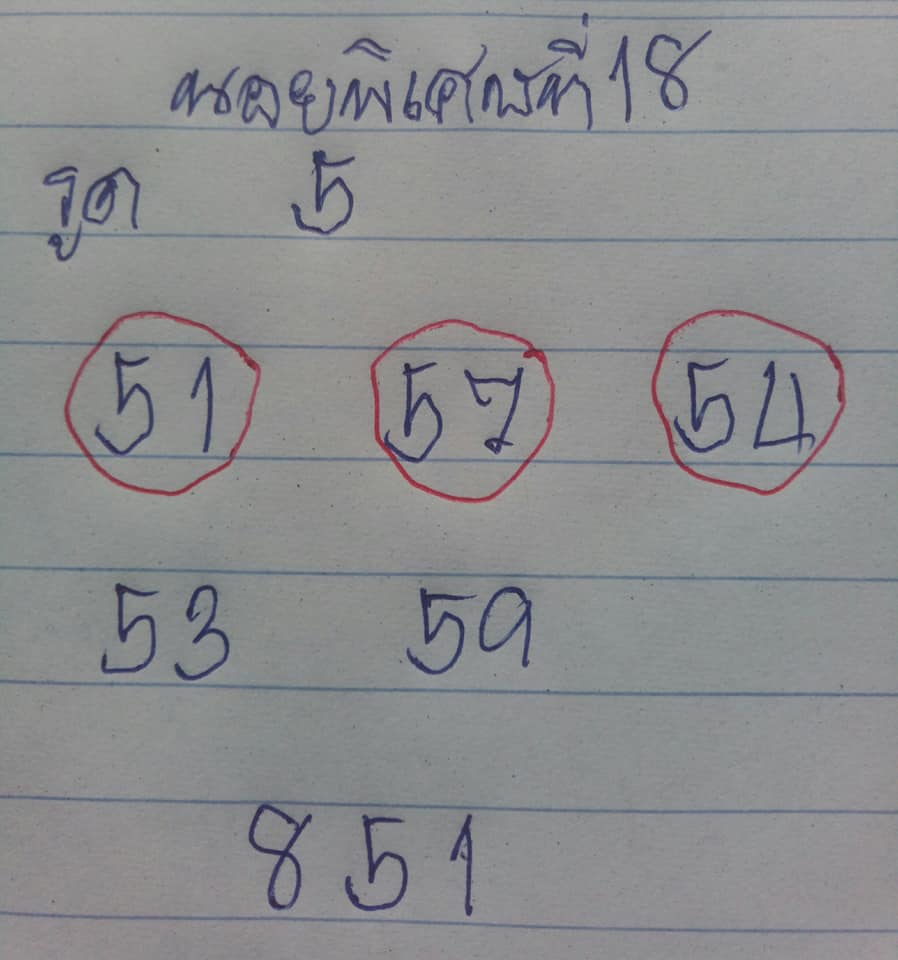 ฮานอยพิเศษที่ 18
รูด 5
51 57 54
53 59
851